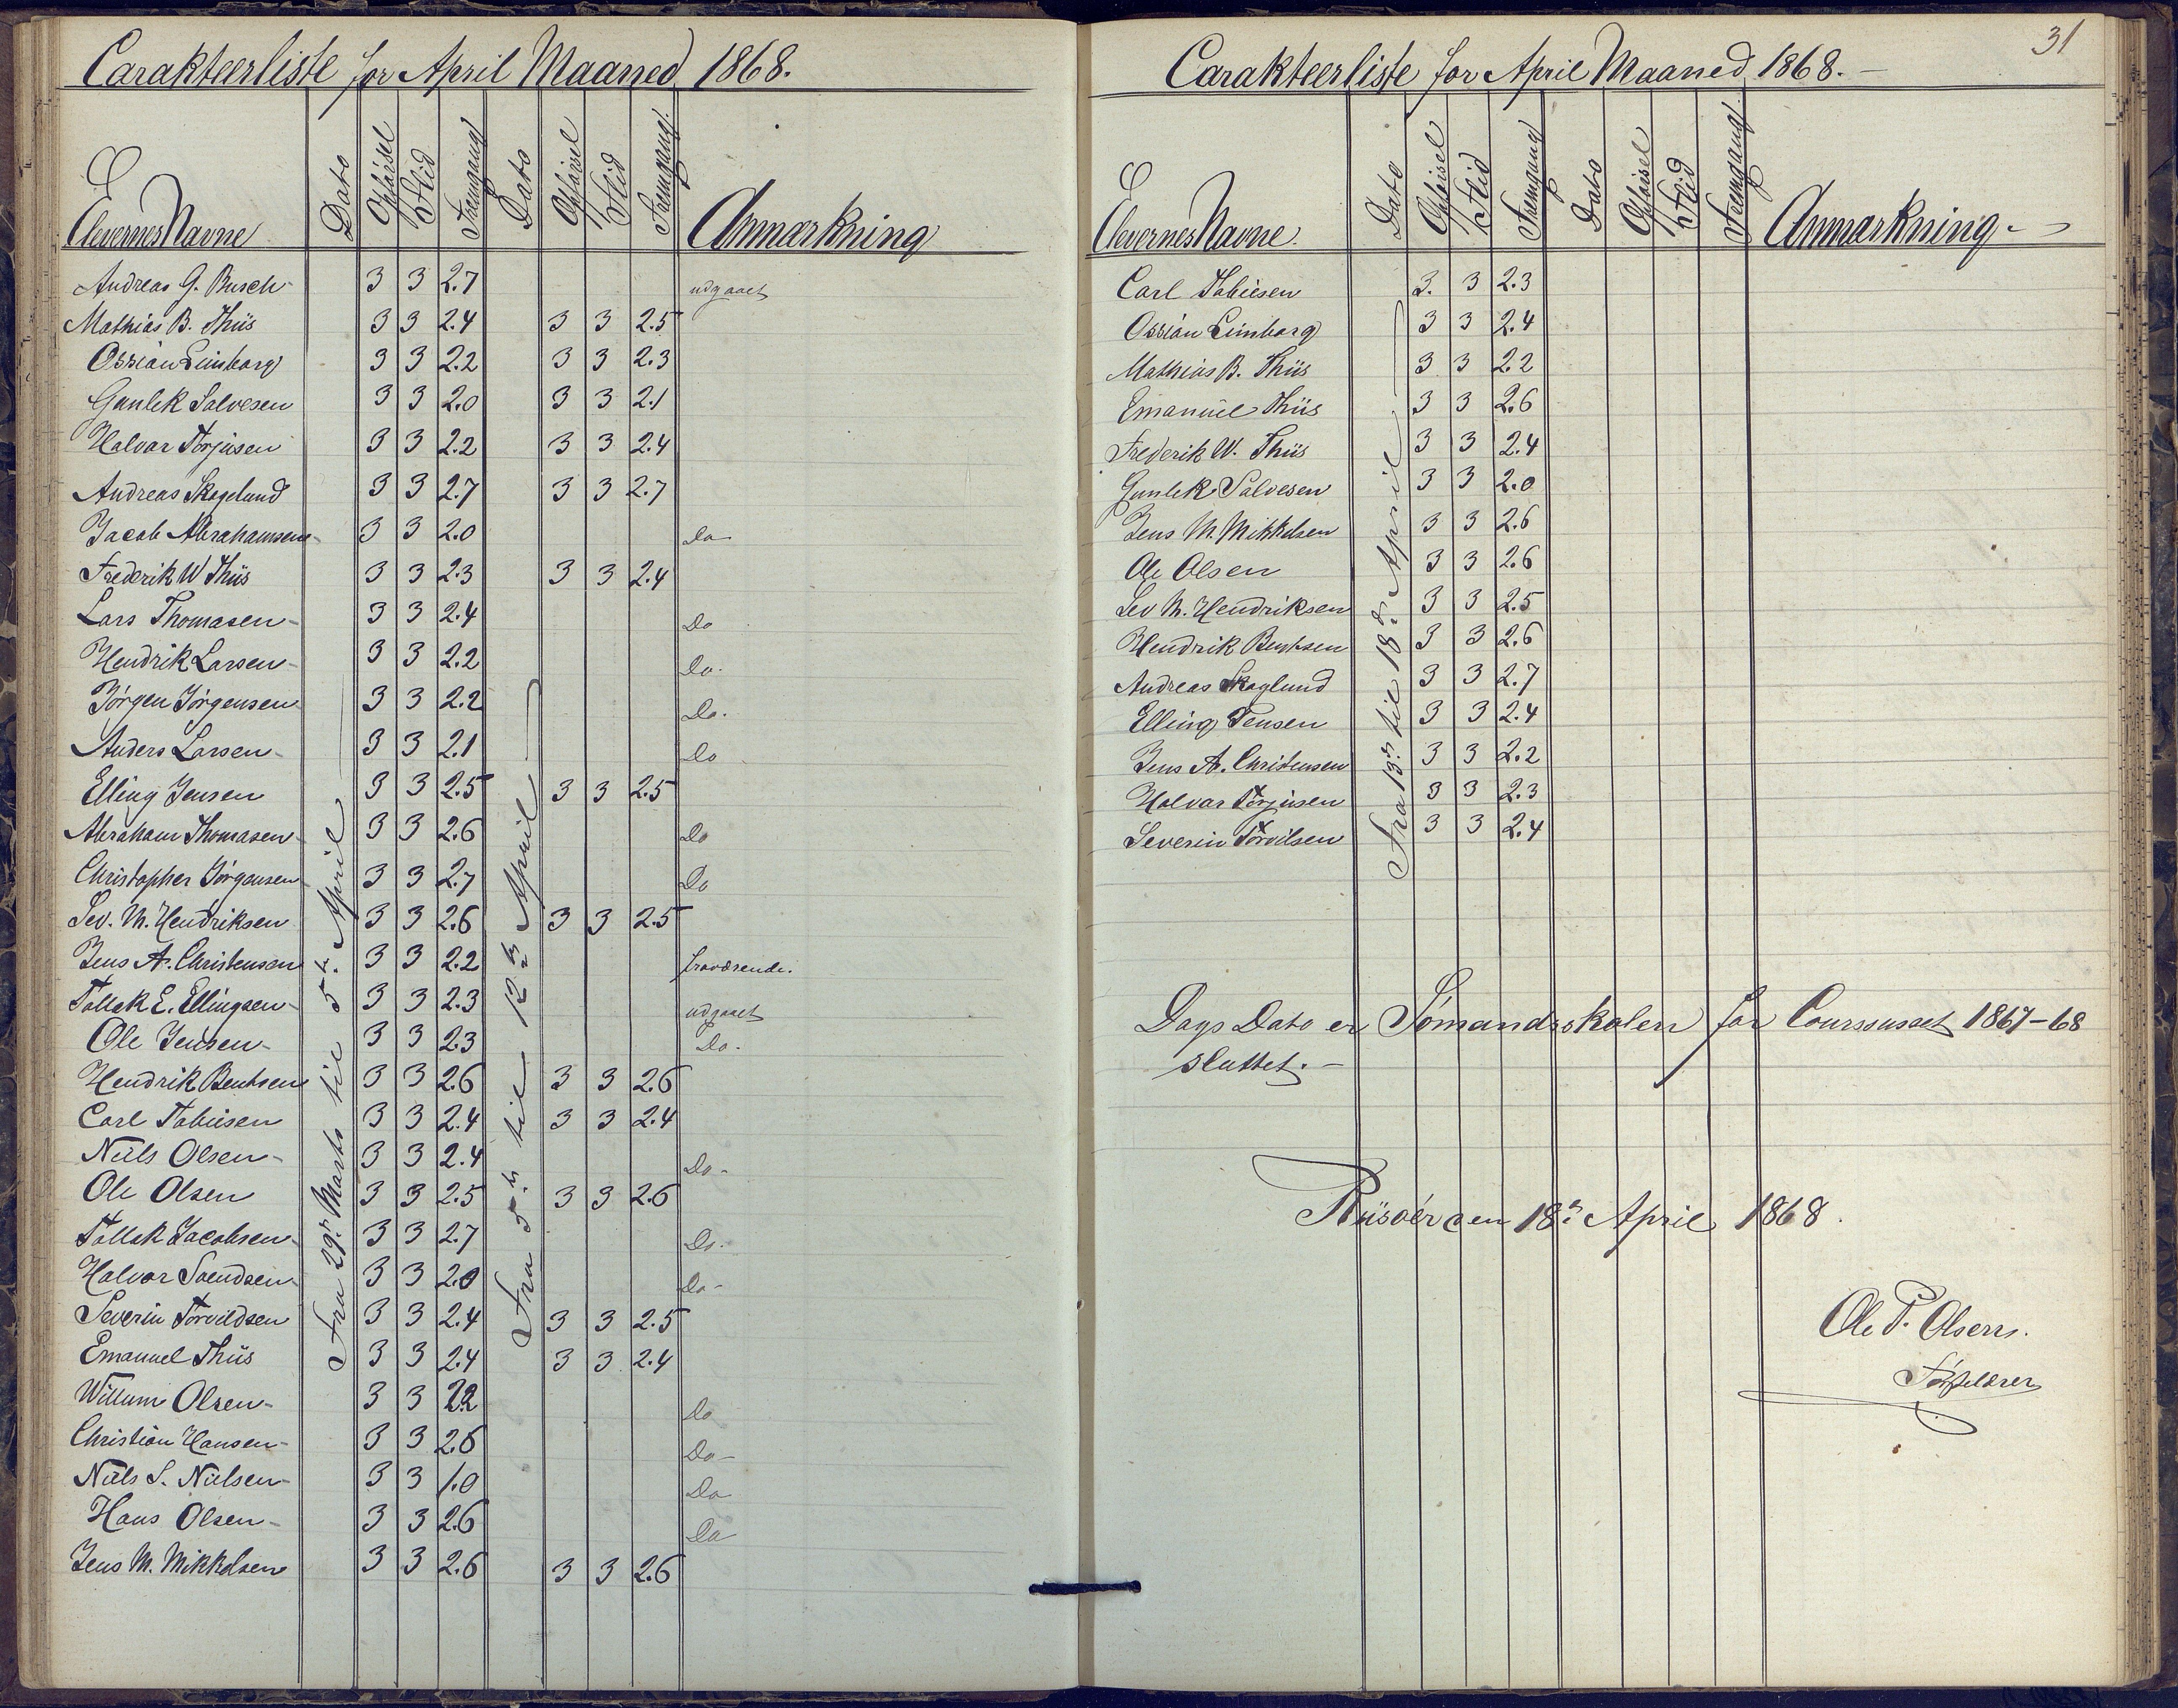 Carakteerliste for April Maaned 1868.
Elevernes Navne Dato Opførsel Flid Fremgang Dato Opførsel Flid Fremgang. Anmærkning
Fra 29de Marts til 5te April
Fra 5te til 12te April
Andreas G. Busch 3 3 2.7 udgaaet
Mathias B. Thiis 3 3 2.4 3 3 2.5
Ossian Limborg 3 3 2.2 3 3 2.3
Gunlek Salvesen 3 3 2.0 3 3 2.1
Halvor Torjusen 3 3 2.2 3 3 2.4
Andreas Skoglund 3 3 2.7 3 3 2.7
Jacob Abrahamsen 3 3 2.0 Do
Frederik W Thiis 3 3 2.3 3 3 2.4
Lars Thomasen 3 3 2.4 Do
Hendrik Larsen 3 3 2.2 Do.
Jørgen Jørgensen 3 3 2.2 Do.
Anders Larsen 3 3 2.1 Do
Elling Jensen 3 3 2.5 3 3 2.5
Abraham Thomasen 3 3 2.6 Do
Christopher Jørgensen 3 3 2.7 Do
Sev. M. Hendriksen 3 3 2.6 3 3 2.5
Jens A. Christensen 3 3 2.2 fraværende.
Tallak E. Ellingsen 3 3 2.3 udgaaet
Ole Jensen 3 3 2.3 Do.
Hendrik Bentsen 3 3 2.6 3 3 2.6
Carl Tobiesen 3 3 2.4 3 3 2.4
Niels Olsen 3 3 2.4 Do
Ole Olsen 3 3 2.5 3 3 2.6
Tallak Jacobsen 3 3 2.7 Do.
Halvor Svendsen 3 3 2.0 Do
Severin Torvildsen 3 3 2.4 3 3 2.5
Emanuel Thiis 3 3 2.4 3 3 2.4
Willum Olsen 3 3 2.2 Do
Christian Hansen 3 3 2.6 Do
Niels S. Nielsen 3 3 1.0 Do
Hans Olsen 3 3 2.6 Do
Jens M. Mikkelsen 3 3 2.6 3 3 2.6
31
Carakteerliste for April Maaned 1868.
Elevernes Navne. Dato Opførsel Flid Fremgang Dato Opførsel Flid Fremgang. Anmærkning
Fra 13de til 18de April
Carl Tobiesen 3. 3 2.3
Ossian Limborg 3 3 2.4
Mathias B. Thiis 3 3 2.2
Emanuel Thiis 3 3 2.6
Frederik W. Thiis 3 3 2.4
Gunlek Salvesen 3 3 2.0
Jens M. Mikkelsen 3 3 2.6
Ole Olsen 3 3 2.6
Sev M. Hendriksen 3 3 2.5
Hendrik Bentsen 3 3 2.6
Andreas Skoglund 3 3 2.7
Elling Jensen 3 3 2.4
Jens A. Christensen 3 3 2.2
Halvor Torjusen 3 3 2.3
Severin Torvilsen 3 3 2.4
Dags Dato er Sømandsskolen for Coursuset 1867-68
sluttet.
Riisøer den 18de April 1868.
Ole T. Olsen.